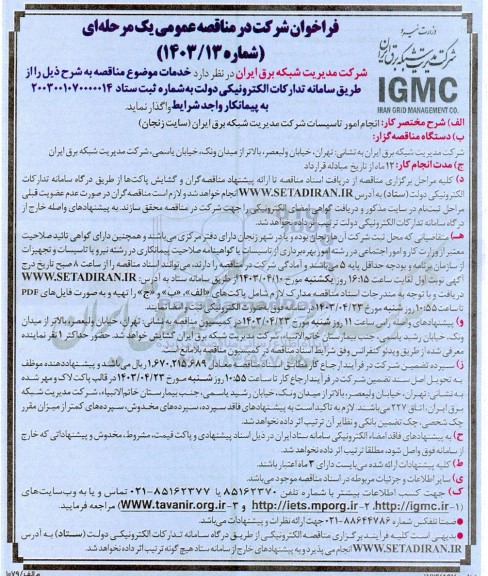 فراخوان شرکت در مناقصه عمومی یک مرحله‌ای
(شماره ۱۴۰۳/۱۳)
وزارت نیرو
شرکت مدیریت شبکه برق ایران
IGMC
IRAN GRID MANAGEMENT CO.
شرکت مدیریت شبکه برق ایران در نظر دارد خدمات موضوع مناقصه به شرح ذیل را از
طریق سامانه تدارکات الکترونیکی دولت به شماره ثبت ستاد ۲۰۰۳۰۰۱۰۷۰۰۰۰۰۱۴
به پیمانکار واجد شرایط واگذار نماید.
الف) شرح مختصر کار: انجام امور تاسیسات شرکت مدیریت شبکه برق ایران (سایت زنجان)
ب) دستگاه مناقصه گزار:
شرکت مدیریت شبکه برق ایران به نشانی: تهران، خیابان ولیعصر، بالاتر از میدان ونک، خیابان یاسمی، شرکت مدیریت شبکه برق ایران
ج) مدت انجام کار: ۱۲ ماه از تاریخ مبادله قرارداد
د) کلیه مراحل برگزاری مناقصه از دریافت اسناد مناقصه تا ارائه پیشنهاد مناقصه‌گران و گشایش پاکت‌ها از طریق درگاه سامانه تدارکات
الکترونیکی دولت (ستاد) به آدرس WWW.SETADIRAN.IR انجام خواهد شد و لازم است مناقصه‌گران در صورت عدم عضویت قبلی
مراحل ثبت‌نام در سایت مذکور و دریافت گواهی امضای الکترونیکی را جهت شرکت در مناقصه محقق سازند. به پیشنهادهای واصله خارج از
درگاه سامانه تدارکات الکترونیکی دولت ترتیب اثر داده نخواهد شد.
هـ) متقاضیانی که محل ثبت شرکت آن‌ها زنجان بوده و یا در شهر زنجان دارای دفتر مرکزی می‌باشند و همچنین دارای گواهی تائید صلاحیت
معتبر از وزارت کار و امور اجتماعی در رشته امور بهره‌برداری از تاسیسات یا گواهینامه صلاحیت پیمانکاری در رشته نیرو یا تاسیسات و تجهیزات
از سازمان برنامه و بودجه حداقل پایه ۵ می‌باشند و آمادگی شرکت در مناقصه را دارند، می‌توانند اسناد مناقصه را از ساعت ۸ صبح تاریخ درج
آگهی نوبت اول لغایت ساعت ۱۶:۱۵ روز یکشنبه مورخ ۱۴۰۳/۰۴/۱۰ از طریق سامانه ستاد به آدرس WWW.SETADIRAN.IR
دریافت و با توجه به مندرجات اسناد مناقصه مدارک لازم شامل پاکت‌های «الف»، «ب» و «ج» را تهیه و به صورت فایل‌های PDF
تا ساعت ۱۰:۵۵ روز شنبه مورخ ۱۴۰۳/۰۴/۲۳ در سامانه فوق به صورت الکترونیکی ثبت و امضا نمایند.
و) پیشنهادهای واصله راس ساعت ۱۱ روز شنبه مورخ ۱۴۰۳/۰۴/۲۳ در کمیسیون مناقصه به نشانی: تهران، خیابان ولیعصر، بالاتر از میدان
ونک، خیابان رشید یاسمی، جنب بیمارستان خاتم‌الانبیاء، شرکت مدیریت شبکه برق ایران گشایش خواهد شد. حضور حداکثر ۱ نفر نماینده
معرفی شده از طریق ویدئو کنفرانس وفق شرایط اسناد مناقصه در کمیسیون مناقصه بلامانع است.
ز) سپرده تضمین شرکت در فرآیند ارجاع کار مطابق اسناد مناقصه معادل ۱.۶۷۰.۲۱۵.۶۸۹ ریال می‌باشد و پیشنهاددهنده موظف
به تحویل اصل سند تضمین شرکت در فرآیند ارجاع کار تا ساعت ۱۰:۵۵ روز شنبه مورخ ۱۴۰۳/۰۴/۲۳ در قالب پاکت لاک و مهر شده
به نشانی: تهران، خیابان ولیعصر، بالاتر از میدان ونک، خیابان رشید یاسمی، جنب بیمارستان خاتم‌الانبیاء، شرکت مدیریت شبکه
برق ایران، اتاق ۲۲۷ می‌باشند. لازم به تاکید است به پیشنهادهای فاقد سپرده، سپرده‌های مخدوش، سپرده‌های کمتر از میزان مقرر
چک شخصی، چک تضمین بانکی و نظایر آن ترتیب اثر داده نخواهد شد.
ح) به پیشنهادهای فاقد امضاء الکترونیکی سامانه ستاد ایران در ذیل اسناد پیشنهادی و پاکت قیمت، مشروط، مخدوش و پیشنهاداتی که خارج
از سامانه فوق واصل شود، مطلقا ترتیب اثر داده نخواهد شد.
ط) کلیه پیشنهادات ارائه شده می‌بایست دارای ۳ ماه اعتبار باشند.
ی) سایر اطلاعات و جزئیات مربوطه در اسناد مناقصه موجود می‌باشد.
ک) جهت کسب اطلاعات بیشتر با شماره تلفن ۸۵۱۶۲۳۷۰ یا ۸۵۱۶۲۳۷۷-۰۲۱ تماس و یا به وب‌سایت‌های
(۱-http://igmc.ir، ۲-http://iets.mporg.ir و ۳-www.tavanir.org.ir) مراجعه فرمایید
ضمنا تلفکس شماره ۸۸۶۴۴۷۸۶-۰۲۱ جهت ارائه نظرات و پیشنهادات می‌باشد.
بدیهی است کلیه فرآیند برگزاری مناقصه الکترونیکی از طریق درگاه سامانه تدارکات الکترونیکی دولت (ستاد) به آدرس
WWW.SETADIRAN.IR انجام می‌پذیرد و به پیشنهادهای خارج از سامانه ستاد هیچ گونه ترتیب اثر داده نخواهد شد.